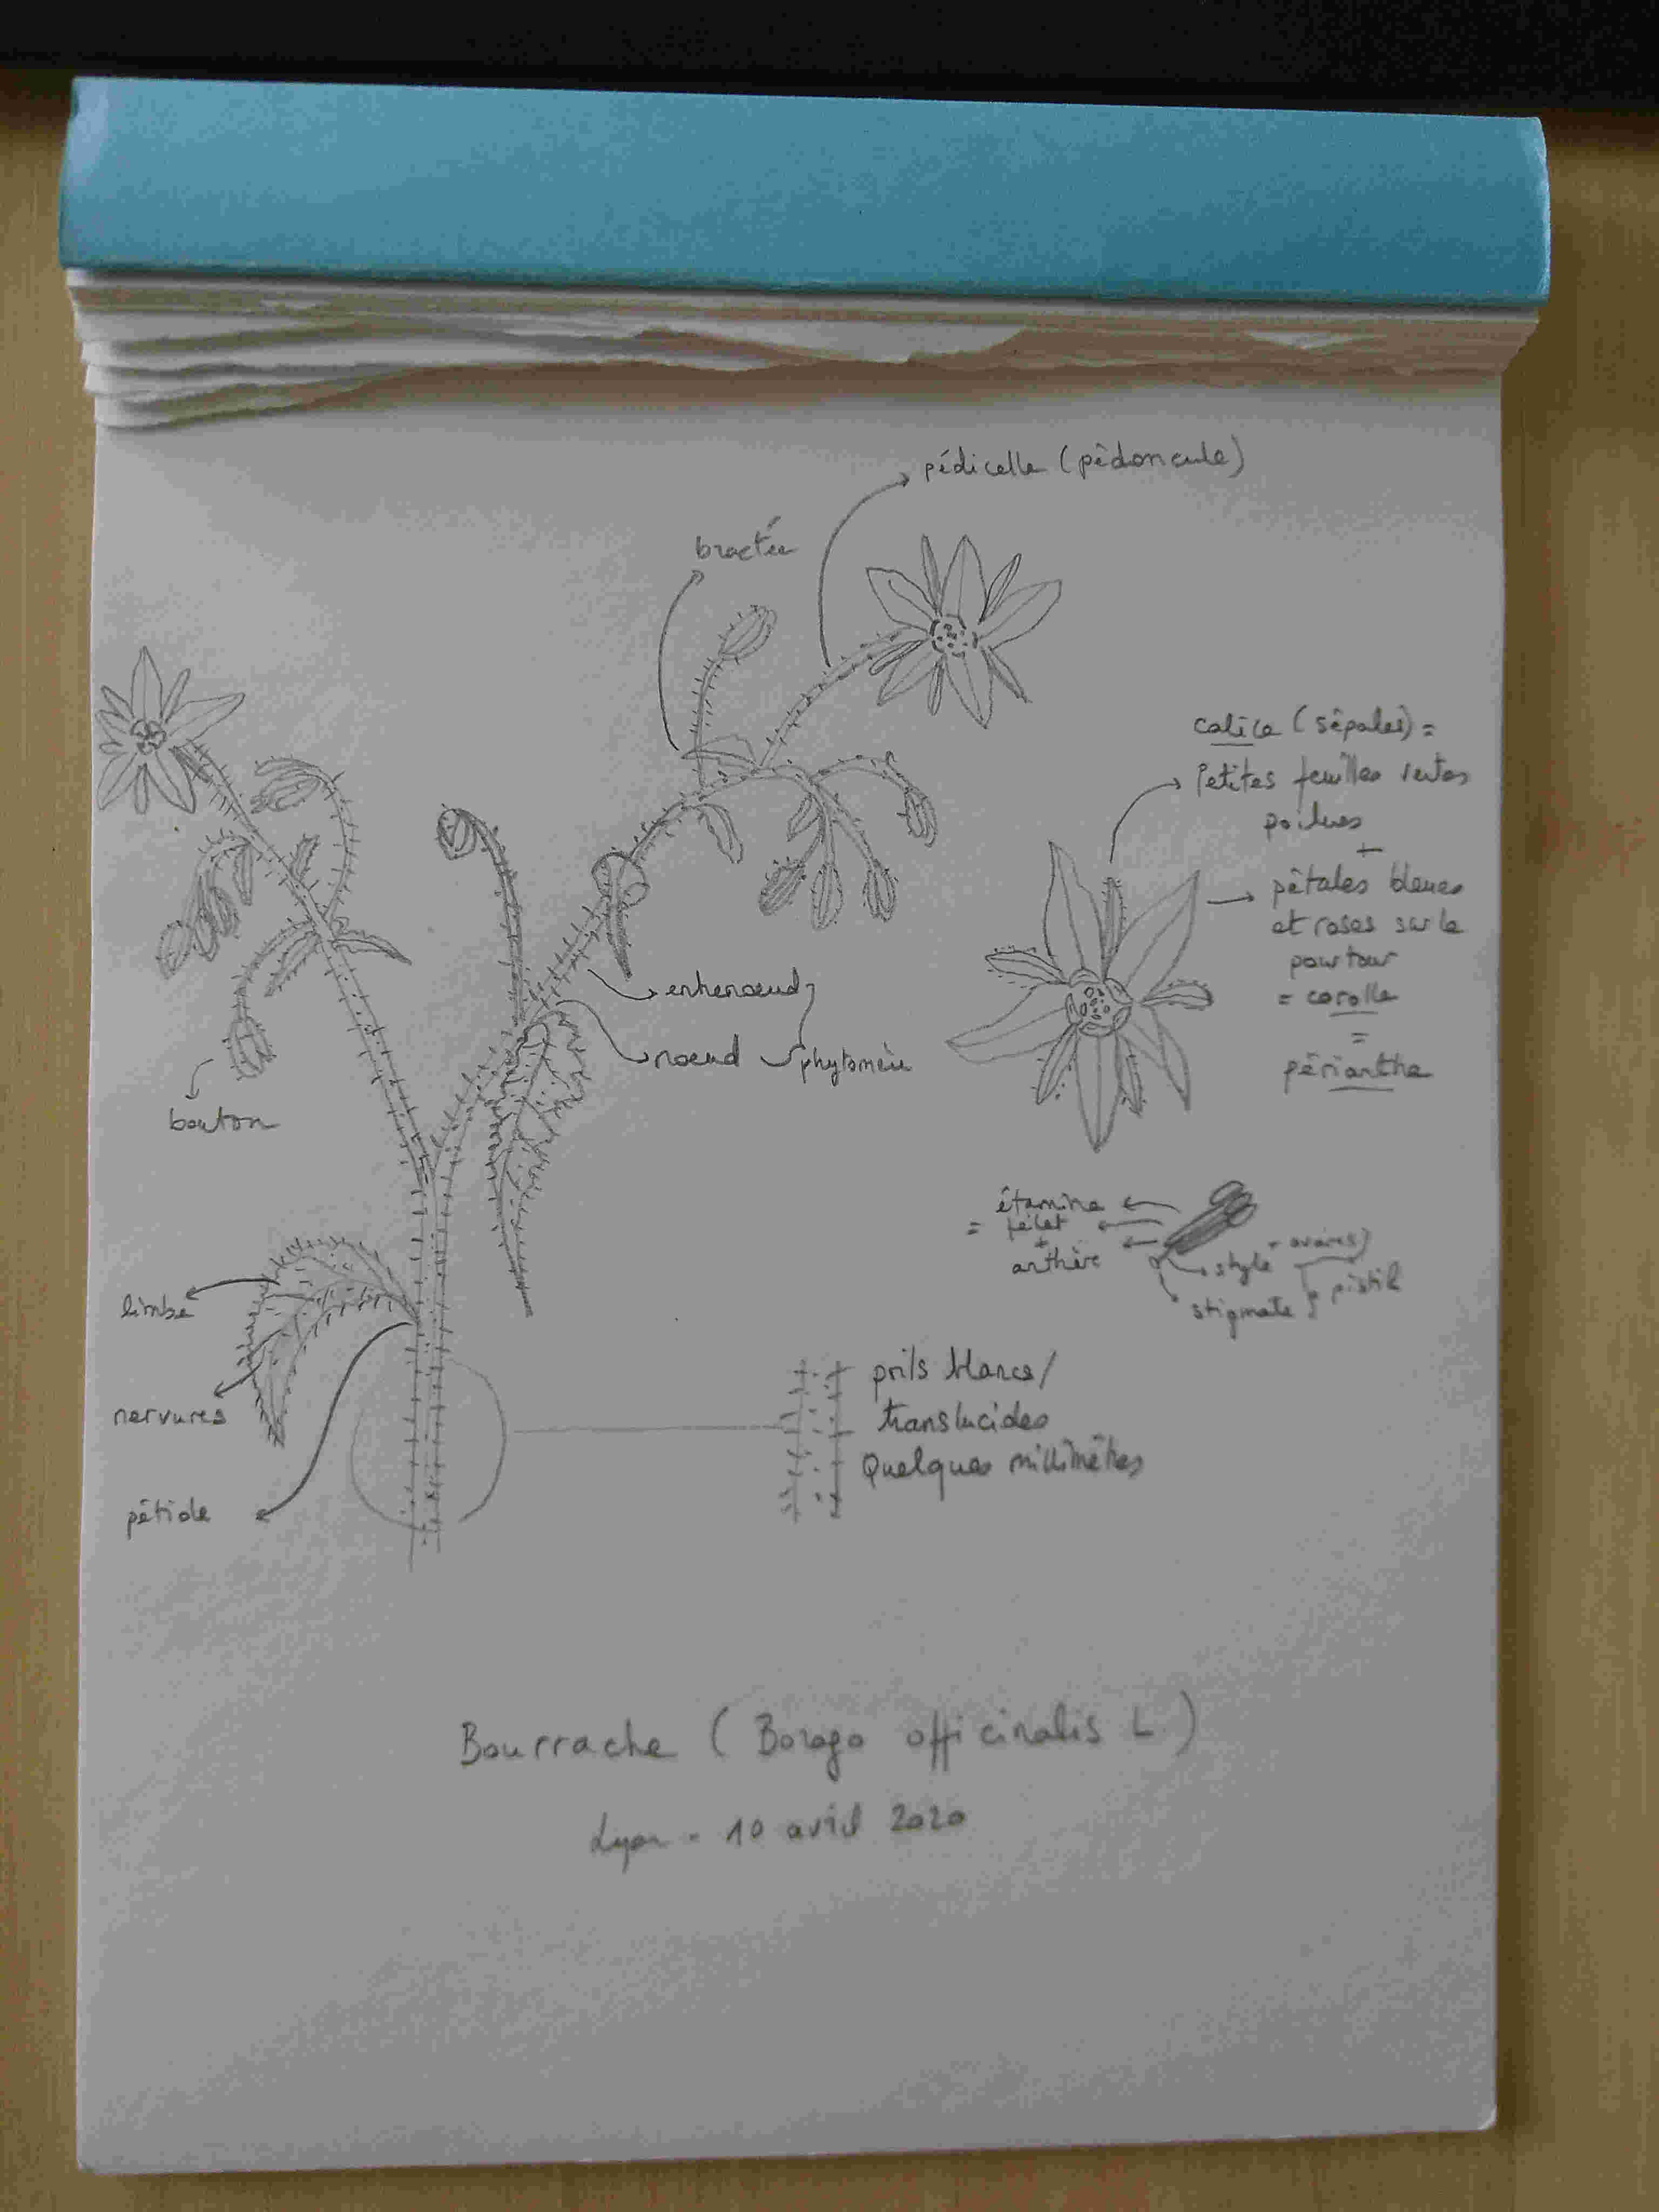 pédicelle (pédoncule)
bractée
calice (sépales) =
Petites feuilles vertes
poilues
+
pétales bleues
et roses sur le
pourtour
= corolle
=
périanthe
entrenoeud
noeud
phytomère
bouton
étamine
= filet
+
anthère
style + ovaires
stigmate
pistil
limbe
nervures
pétiole
poils blancs/
translucides
Quelques millimètres
Bourrache (Borago officinalis L)
Lyon - 10 avril 2020